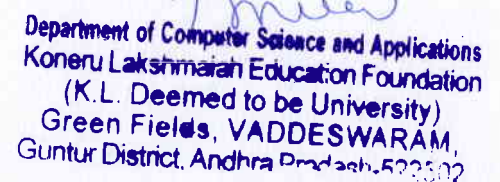 Department of Computer Science and Applications
Koneru Lakshmaiah Education Foundation
(K.L. Deemed to be University)
Green Fields, VADDESWARAM,
Guntur District, Andhra Pradesh-522302